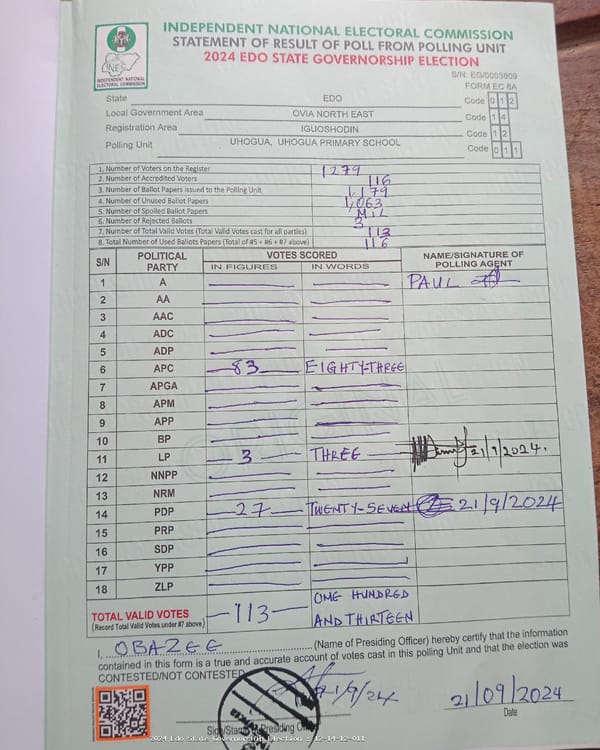 INDEPENDENT NATIONAL ELECTORAL COMMISSION
STATEMENT OF RESULT OF POLL FROM POLLING UNIT
2024 EDO STATE GOVERNORSHIP ELECTION
INEC
INDEPENDENT NATIONAL ELECTORAL COMMISSION
S/N: EG/0003809
FORM EC 8A
State EDO Code 0 1 2
Local Government Area OVIA NORTH EAST Code 1 4
Registration Area IGUOSHODIN Code 1 2
Polling Unit UHOGUA, UHOGUA PRIMARY SCHOOL Code 0 1 1
1. Number of Voters on the Register 1279
2. Number of Accredited Voters 116
3. Number of Ballot Papers Issued to the Polling Unit 1,179
4. Number of Unused Ballot Papers 1,063
5. Number of Spoiled Ballot Papers NIL
6. Number of Rejected Ballots 3
7. Number of Total Valid Votes (Total Valid Votes cast for all parties) 113
8. Total Number of Used Ballots Papers (Total of #5 + #6 + #7 above) 116
S/N POLITICAL PARTY VOTES SCORED NAME/SIGNATURE OF POLLING AGENT
IN FIGURES IN WORDS
1 A PAUL
2 AA
3 AAC
4 ADC
5 ADP
6 APC 83 EIGHTY-THREE
7 APGA
8 APM
9 APP
10 BP
11 LP 3 THREE 21/9/2024.
12 NNPP
13 NRM
14 PDP 27 TWENTY-SEVEN 21/9/2024
15 PRP
16 SDP
17 YPP
18 ZLP
TOTAL VALID VOTES 113 ONE HUNDRED AND THIRTEEN
(Record Total Valid Votes under #7 above)
I, OBAZEE (Name of Presiding Officer) hereby certify that the information
contained in this form is a true and accurate account of votes cast in this polling Unit and that the election was
CONTESTED/NOT CONTESTED
21/9/24
21/09/2024
Sign/Stamp of Presiding Date
2024 Edo State Governorship Election - 12-14-12-011